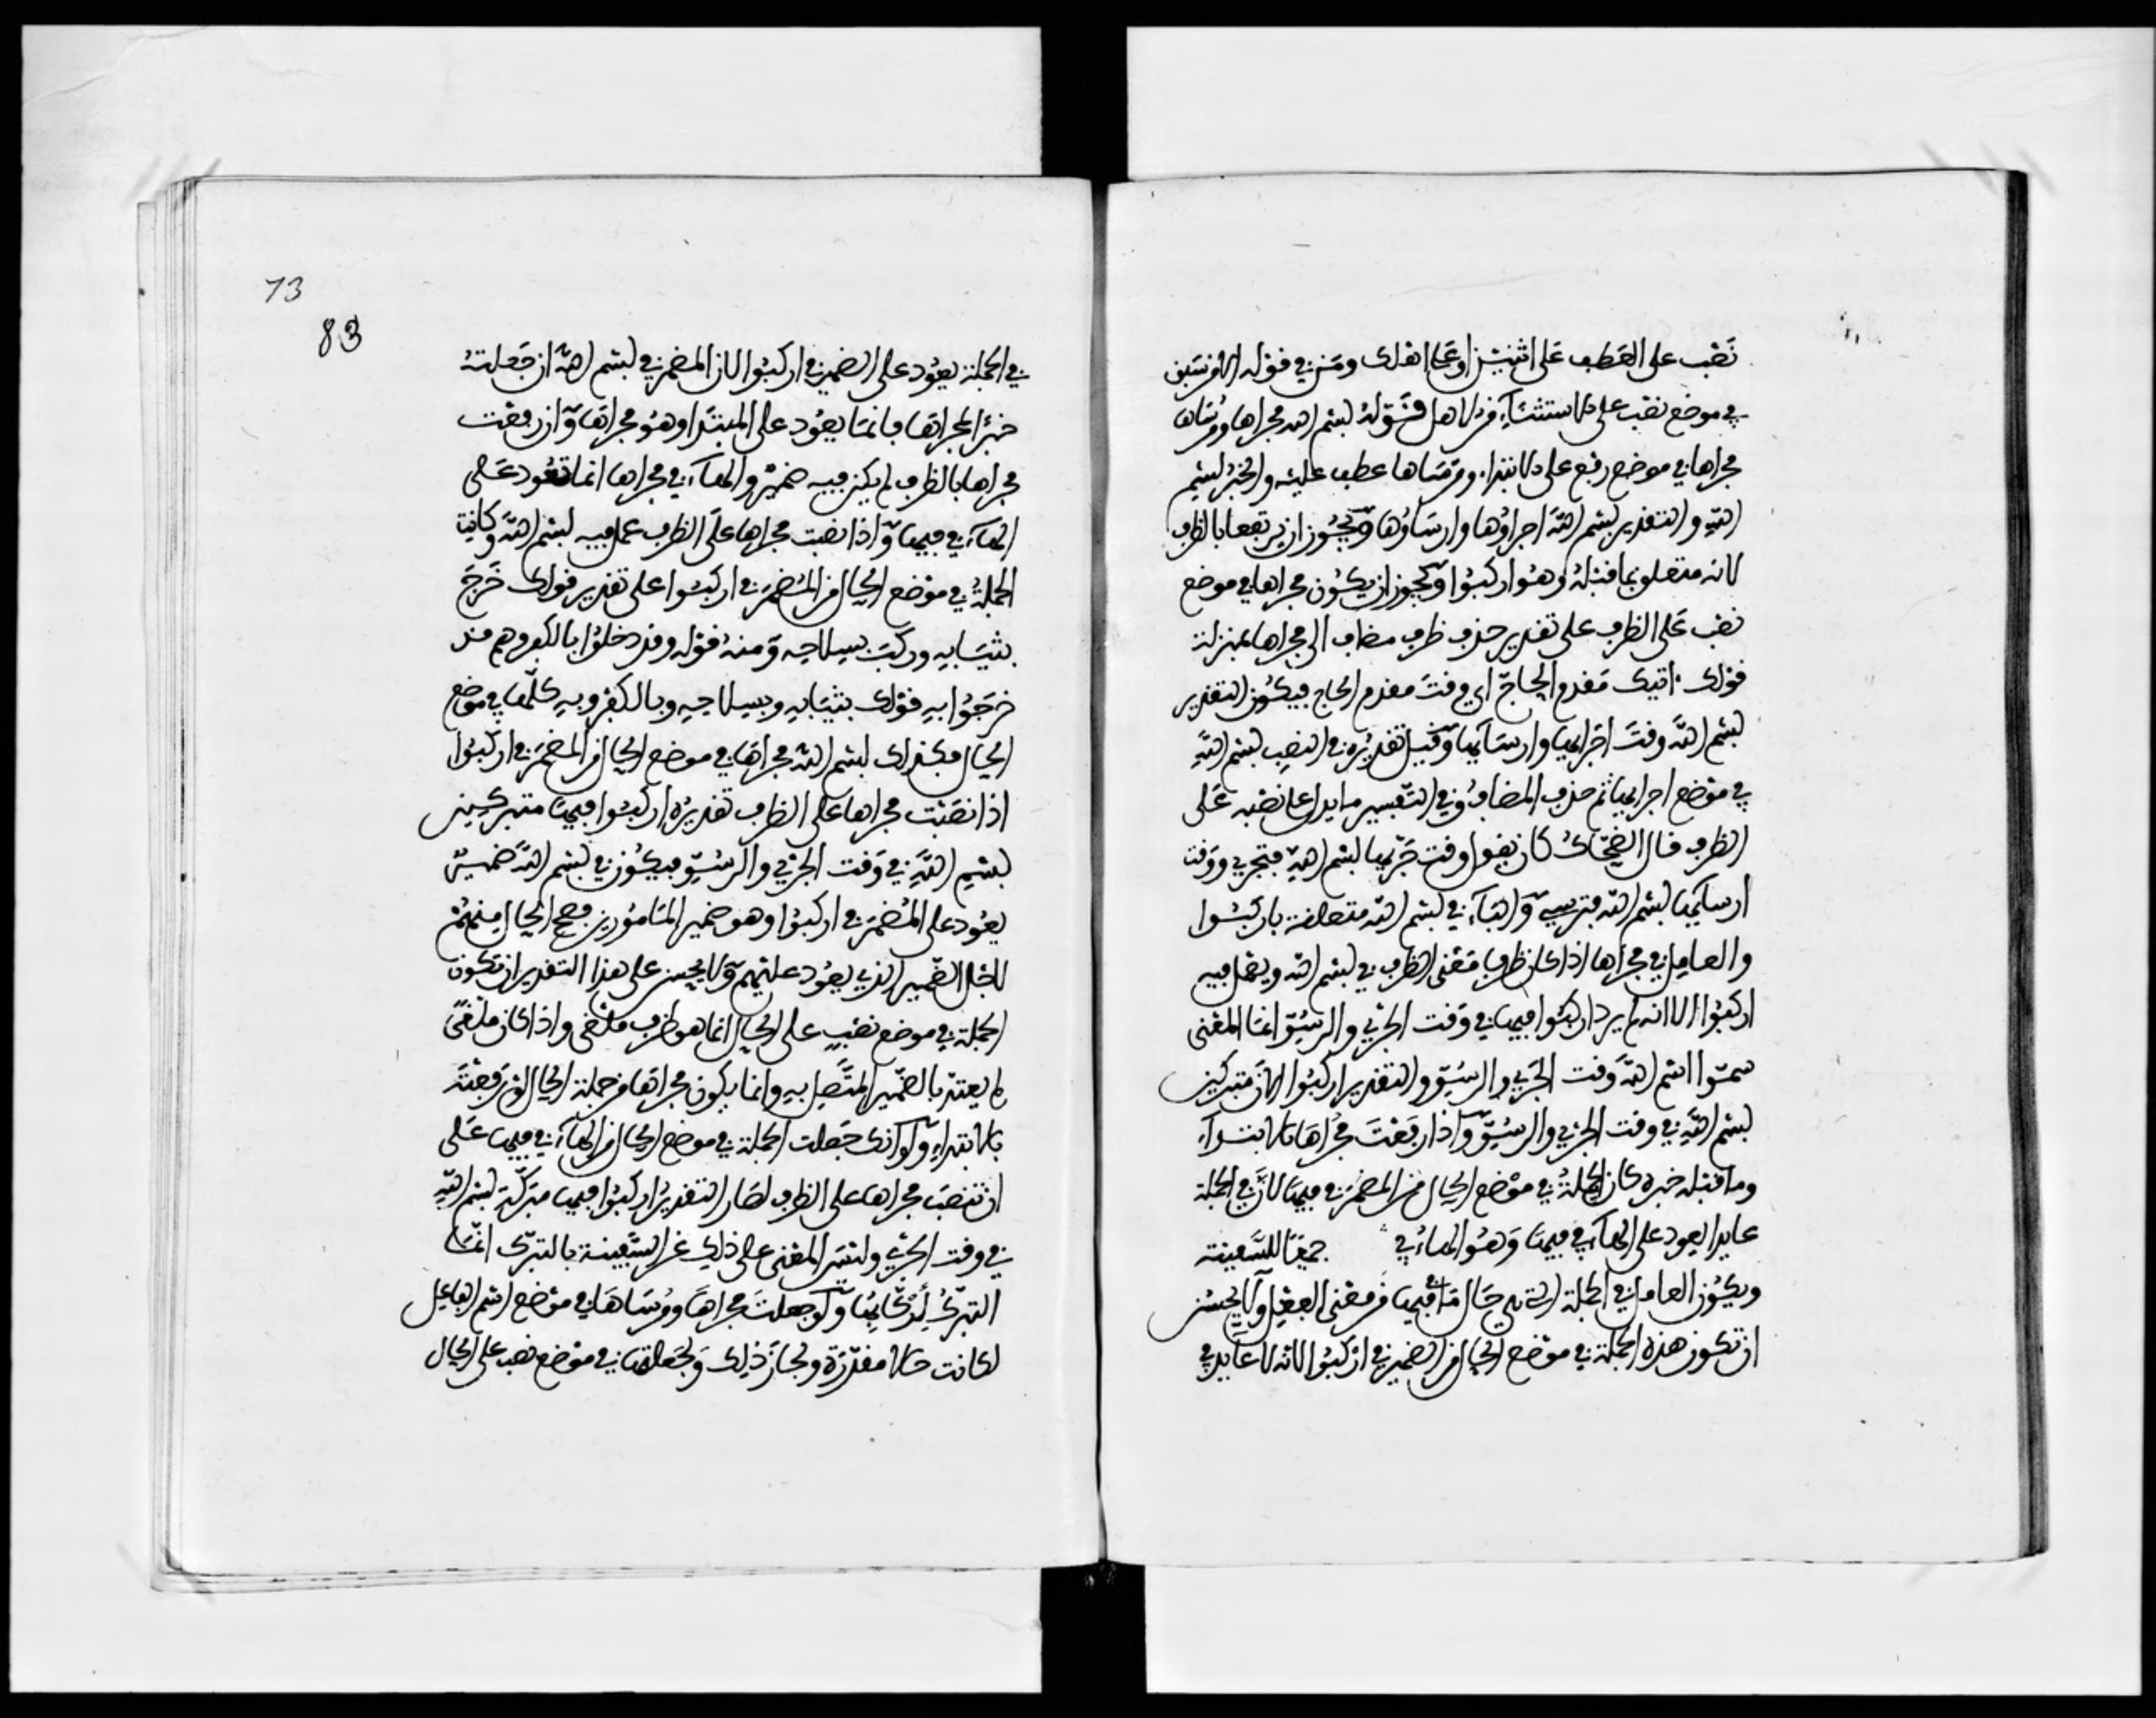 نَصْب على العَطف عَلى اثنين او على اهلك ومَن في قوله الا من سَبَق
في موضع نصْب على الاستثناء من الاهل قَوْلهُ بسْم الله مجراها ومُرساها
مجراها في موضع رفع على الابتداء ومرساها عطف عليْه والخبْر بسْم
اللهِ والتقدير بسْم اللهِ اجراؤها وارسَاؤها وَيجُوز ان يرتفعا بالظرف
لانه متعلق بما قبْله وهُو اركبُوا ويجوز ان يكُون مجراها في موضع
نصْب عَلى الظرف على تقدير حذف ظرف مضاف الى مجراها بمنزلة
قولك اتيتك مَقدم الحاجّ اي وقتَ مقدم الحاج فيكُون التقدير
بسْم اللهِ وقتَ اجْرايها وارسَايها وَقيل تقديرُه في النصْب بسْم اللهِ
في موْضع اجرايها ثم حذف المضاف وفي التفسير ما يدل على نصْبه عَلى
الظرف قال الضحّاكُ كان يقول وقت جَرْيها بسْم اللهِ فتجري ووَقت
ارسايها بسْم الله فترسي وَالبَاء في بسْم الله متعلقة باركبُوا
والعامِل في مجراها اذا كان ظرفا مَعْنى الظرف في بسْم الله ولا يعْمل فيه
اركبُوا لانه لم يرد اركبُوا فيها في وَقت الجرْي والرسُوّ انما المعْنى
سمّوا اسْم اللهِ وَقت الجَرْي والرسُوّ والتقدير اركبُوا الآن متبركين
بسْم اللهِ في وقت الجرْي والرسُوّ وَاذا رفعْتَ مجْراهَا بالابتداء
وما قبْله خبره كانت الجملةُ في موْضع الحال من المضمَر في فيهَا لانّ في الجملة
عايدا يعود على الهاء في فيهَا وَهُو الهاءُ في جميعًا للسَّفينة
ويكُون العامل في الجملة التي هي حَال مَا في فيها من معْنى الفِعْل ولا يحسُن
ان تكون هذه الجملة في موْضع الحال من الضمير في ارْكبُوا لانه لا عَايد في
73
83
في الجملة يعُود على الضمير في اركبُوا لان المضمَر في بسْم اللهِ ان جَعلتهُ
خبْرًا لمجراهَا فانمَا يعُود على المبتَدا وهُو مجراهَا وَان رفعْت
مجراها بالظرف لم يكن فيه ضميْر والهاء في مجراها انما تعُود عَلى
الهاء في فيها وَاذا نصبت مجراها عَلى الظرف عمل فيه بسْم اللهِ وكانت
الجملةُ في موْضع الحال من المُضمَر في اركبُوا على تقدير قولك خَرَجَ
بثيَابِهِ وركبَ بسِلاحِه وَمنهُ قوْله وقد دخلوُا بالكفر وهم قد
خرَجُوا بهِ فقوْلك بثيَابهِ وبسِلاحِهِ وبالكفرِ وبِهِ كلّها في موْضع
الحال فكذلك بسْم الله مجراهَا في موضع الحال من المضمَر في اركبُوا
اذا نصَبْت مجراها على الظرف تقديرُه اركبُوا فيها متبركين
بسْم اللهِ في وَقت الجرْي والرسُوّ فيكُون في بسْم اللهِ ضميْر
يعُود على المُضمَر في اركبُوا وهو ضمير المَامُورين فصح الحال منهُمْ
لاجْل الضمير الذي يعُود عليْهم ولا يحسن على هذا التقدير ان تكون
الجملة في موضع نصْبٍ على الحال انما هو ظرف ملغى واذا كان ملغىً
لم يعتدّ بالضمير المتَّصِل بهِ وانما يكون مجراهَا من جملة الحال لو رفعْتَهُ
بالابتداء وَلو انك جَعلت الجملة في موضع الحال من الهاء في فيها عَلى
ان تنصبَ مجراها على الظرف لصَار التقدير اركبُوا فيها متبركَة بسْم اللهِ
في وقت الجرْي وليْسَ المعْنى على ذلك غير السَّفينة بالتبرّك انمَا
التبرّكُ لِرُكّابِهَا وَلو جعلتَ مجراهَا ومُرسَاهَا في موْضع اسْم الفاعِل
لكانت حالا مقدّرَة ولجازَ ذلِك وَلجَعلتهَا في موْضع نصْب على الحال